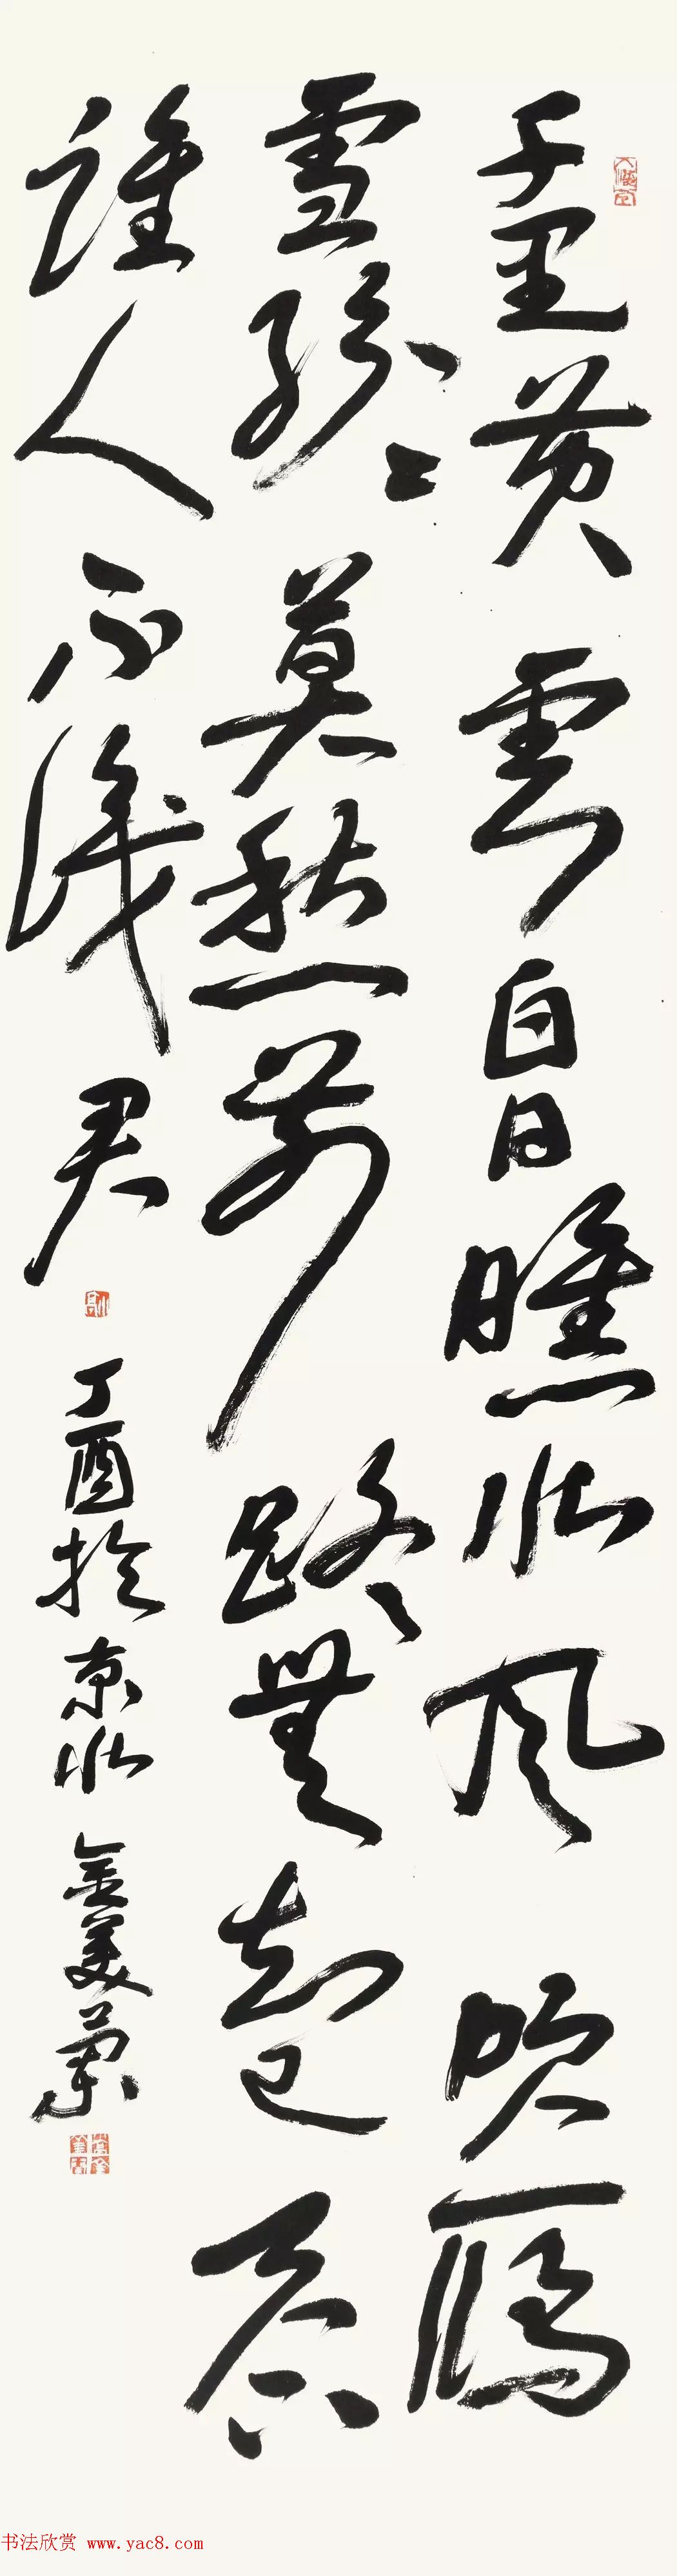 千里黄雲白日曛北风吹鴈
雪紛紛莫愁前路無知己天下
誰人不識君
丁酉於京北 金美蘭
书法欣赏 www.yac8.com